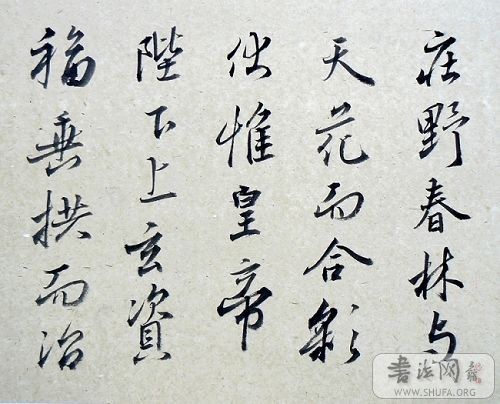 庄野春林与
天花而合彩
伏惟皇帝
陛下上玄資
福垂拱而治
書法网
WWW.SHUFA.ORG